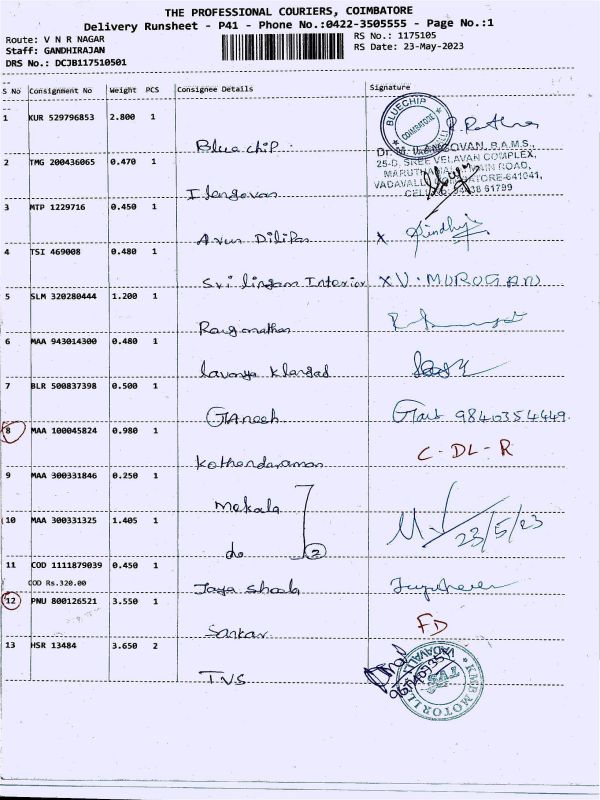 THE PROFESSIONAL COURIERS, COIMBATORE
Delivery Runsheet - P41 - Phone No.:0422-3505555 - Page No.:1
Route: V N R NAGAR
RS No.: 1175105
Staff: GANDHIRAJAN
RS Date: 23-May-2023
DRS No.: DCJB117510501
S No Consignment No Weight PCS Consignee Details Signature
1 KUR 529796853 2.800 1
Blue chip
BLUECHIP COIMBATORE
2 TMG 200436065 0.470 1
Ilangovan
Dr. M. ILANGOVAN, B.A.M.S.,
25-D, SREE VELAVAN COMPLEX,
MAIN ROAD,
VADAVALLI, COIMBATORE-641041,
3 MTP 1229716 0.450 1
Arun Dilipan x
4 TSI 469008 0.480 1
Sri lingam Interior x V. MUROGAN
5 SLM 320280444 1.200 1
6 MAA 943014300 0.480 1
Lavanya
7 BLR 500837398 0.500 1
Ganesh 9840354449
8 MAA 100045824 0.980 1
Kothandaraman C-DL-R
9 MAA 300331846 0.250 1
Mekala
10 MAA 300331325 1.405 1
do 2 23/5/23
11 COD 1111879039 0.450 1
COD Rs.320.00
Jaya
12 PNU 800126521 3.550 1
Sankar FD
13 HSR 13484 3.650 2
TVS